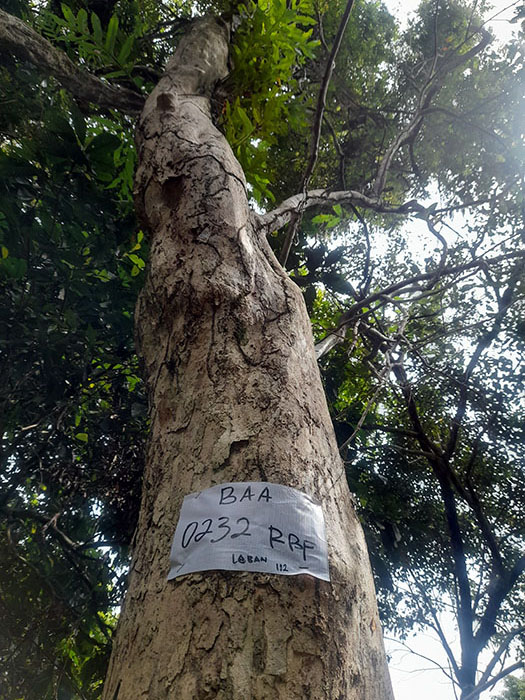 BAA
0232 RBF
LABAN 112